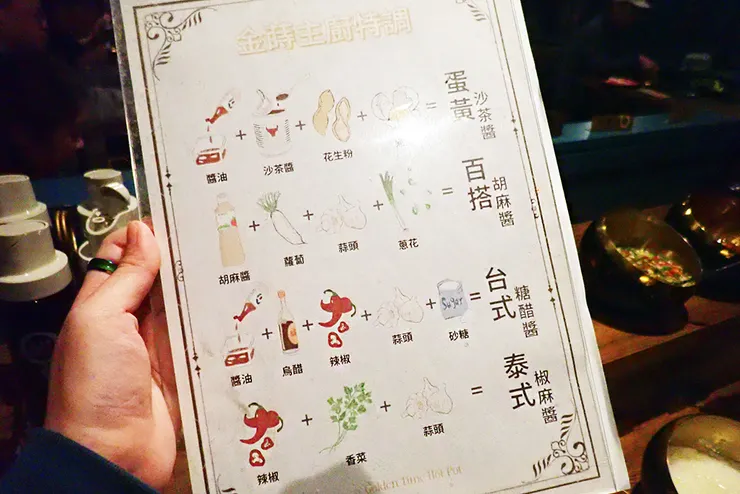 金蒔主廚特調
醬油 + 沙茶醬 + 花生粉 + = 蛋黃沙茶醬
胡麻醬 + 蘿蔔 + 蒜頭 + 蔥花 = 百搭胡麻醬
醬油 + 烏醋 + 辣椒 + 蒜頭 + Sugar 砂糖 = 台式糖醋醬
辣椒 + 香菜 + 蒜頭 = 泰式椒麻醬
Golden Time Hot Pot